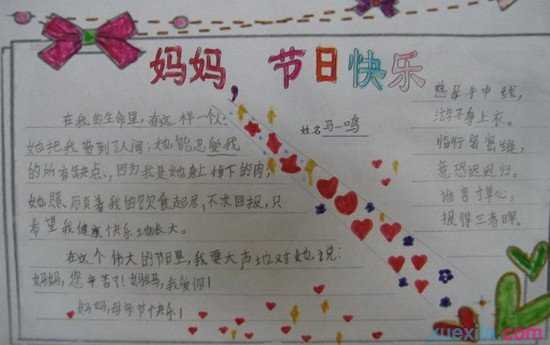 妈妈，节日快乐
姓名马一鸣
在我的生命里，有这样一个人：
她把我带到人间；她能忍受我
的所有缺点，因为我是她身上掉下的肉；
她照顾着我的饮食起居，不求回报，只
希望我健康快乐地长大。
在这个伟大的节日里，我要大声地对她说：
妈妈，您辛苦了！妈妈，我爱你！
妈妈，母亲节快乐！
慈母手中线，
游子身上衣。
临行密密缝，
意恐迟迟归。
谁言寸草心，
报得三春晖。